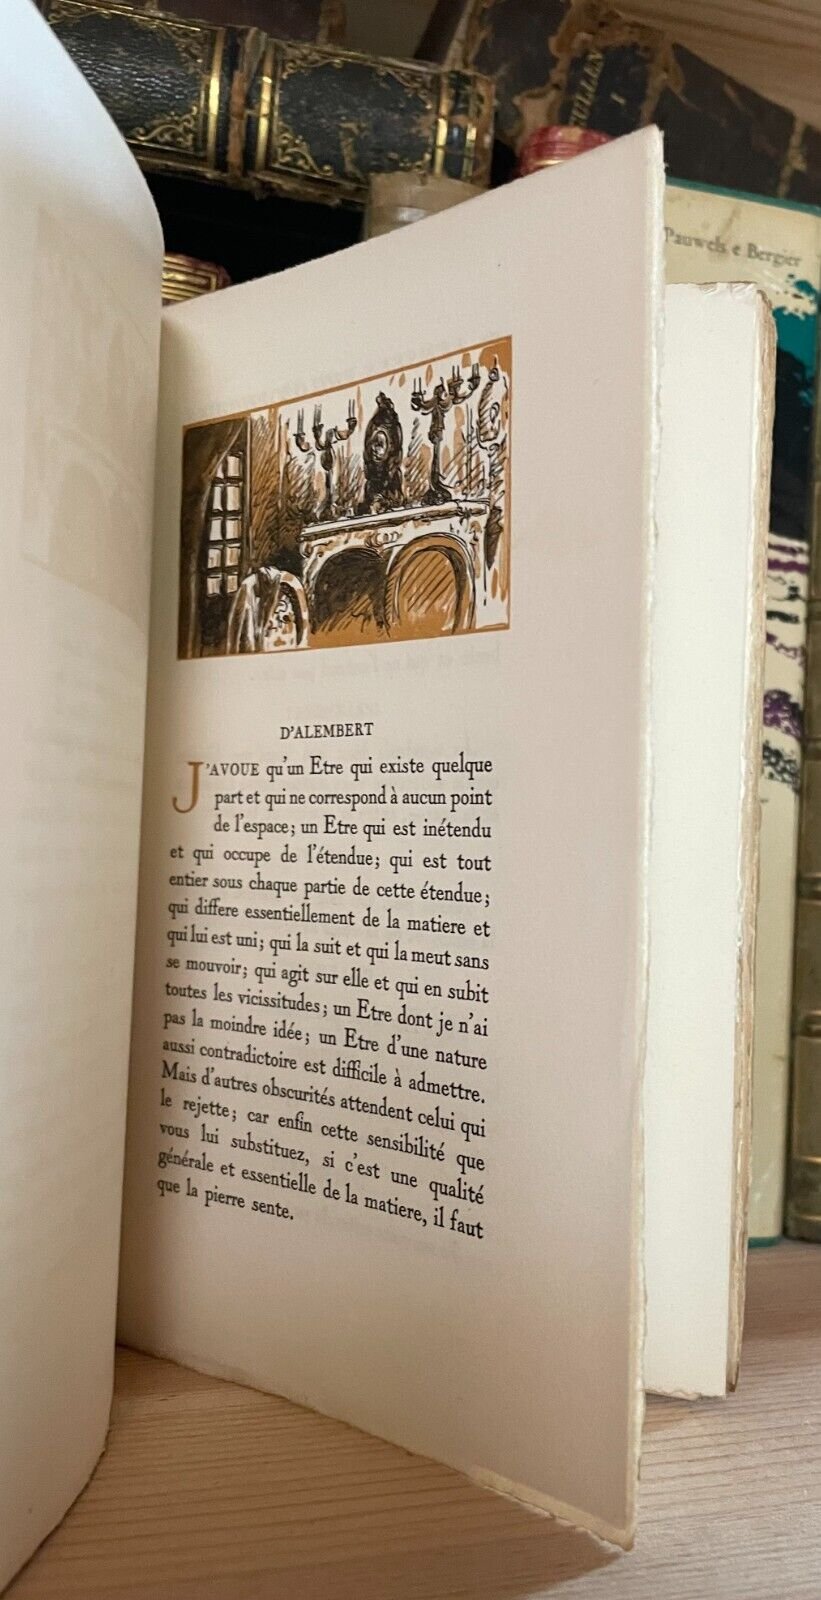 TULLEN
I
Pauwels e Bergier
D'ALEMBERT
J'AVOUE qu'un Etre qui existe quelque
part et qui ne correspond à aucun point
de l'espace; un Etre qui est inétendu
et qui occupe de l'étendue; qui est tout
entier sous chaque partie de cette étendue;
qui differe essentiellement de la matiere et
qui lui est uni; qui la suit et qui la meut sans
se mouvoir; qui agit sur elle et qui en subit
toutes les vicissitudes; un Etre dont je n'ai
pas la moindre idée; un Etre d'une nature
aussi contradictoire est difficile à admettre.
Mais d'autres obscurités attendent celui qui
le rejette; car enfin cette sensibilité que
vous lui substituez, si c'est une qualité
générale et essentielle de la matiere, il faut
que la pierre sente.